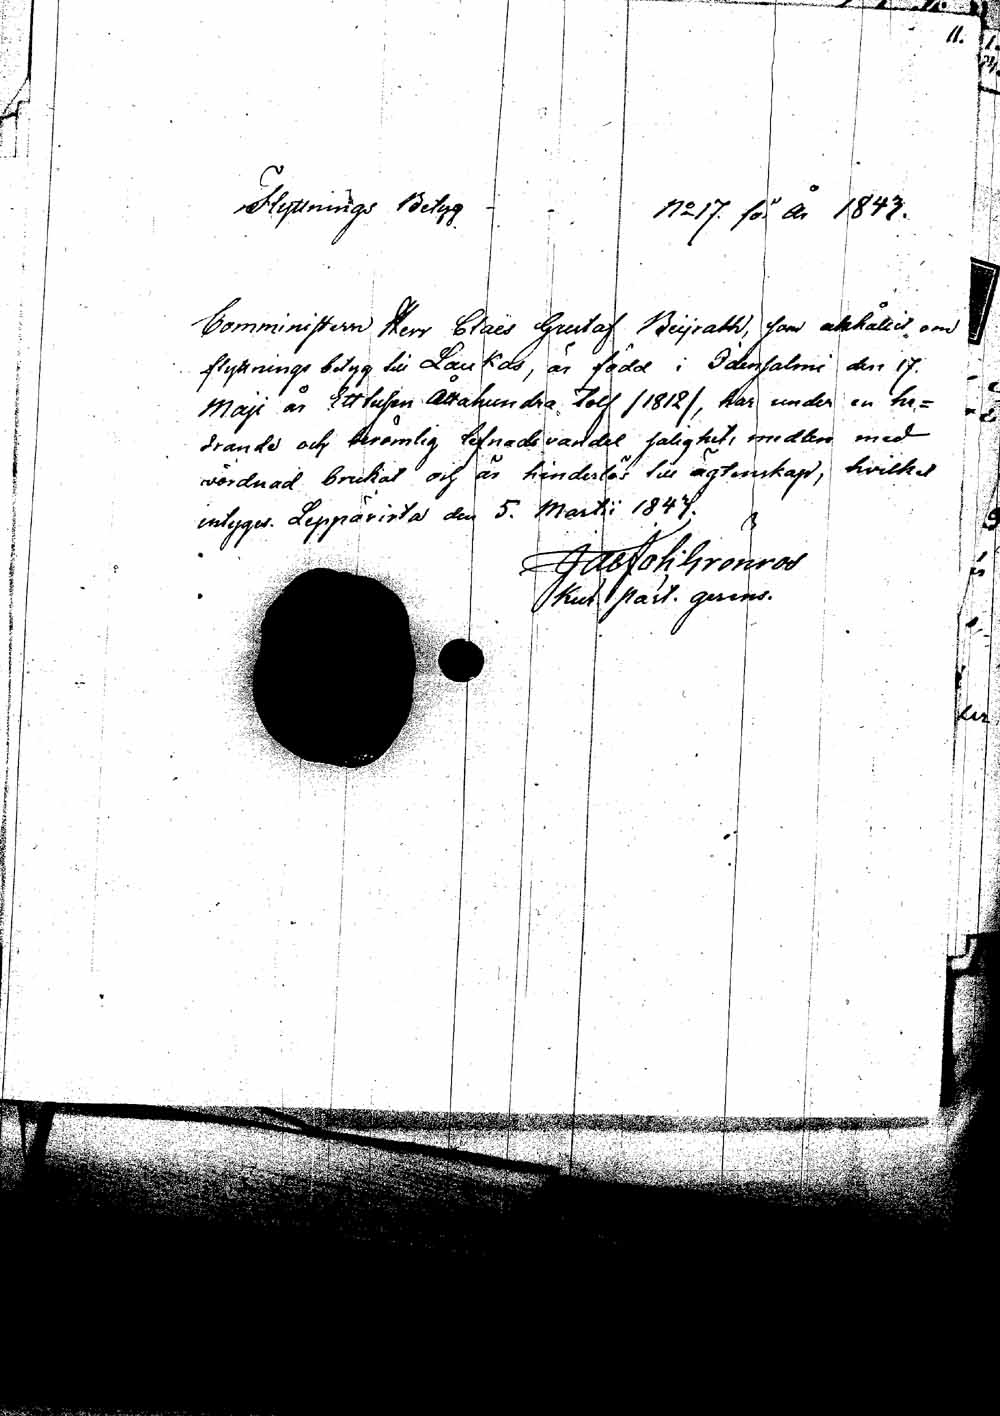 11.
Flyttnings Betyg - - No 17. för år 1847.
Comministern Herr Claës Gustaf Beijrath, som anhållit om
flyttnings betyg till Laukas, är född i Idensalmi den 17.
Maji år Etttusen Åttahundra Tolf /1812/, har under en he=
drande och berömlig lefnads vandel salighets medlen med
vördnad brukat och är hinderlös till ägtenskap, hvilket
intygas. Leppävirta den 5. Martii 1847.
Joh Gronros
past. gerens.